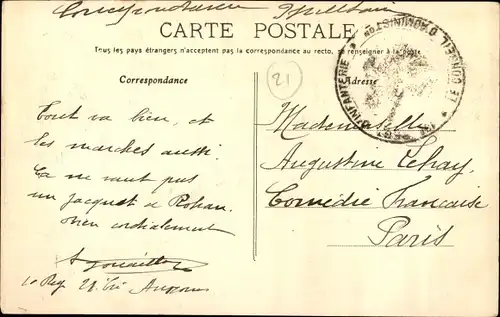 Correspondance Militaire
CARTE POSTALE
Tous les pays étrangers n'acceptent pas la correspondance au recto, se renseigner à la poste
Correspondance
21
Adresse
LE CONSEIL D'ADMINISTRON
D'INFANTERIE
Tout va bien, et
les marches aussi.
Ça ne vaut pas
un Jacquet de Rohan.
bien cordialement
10 Rég
Mademoiselle
Augustine Lehay,
Comédie Française
Paris